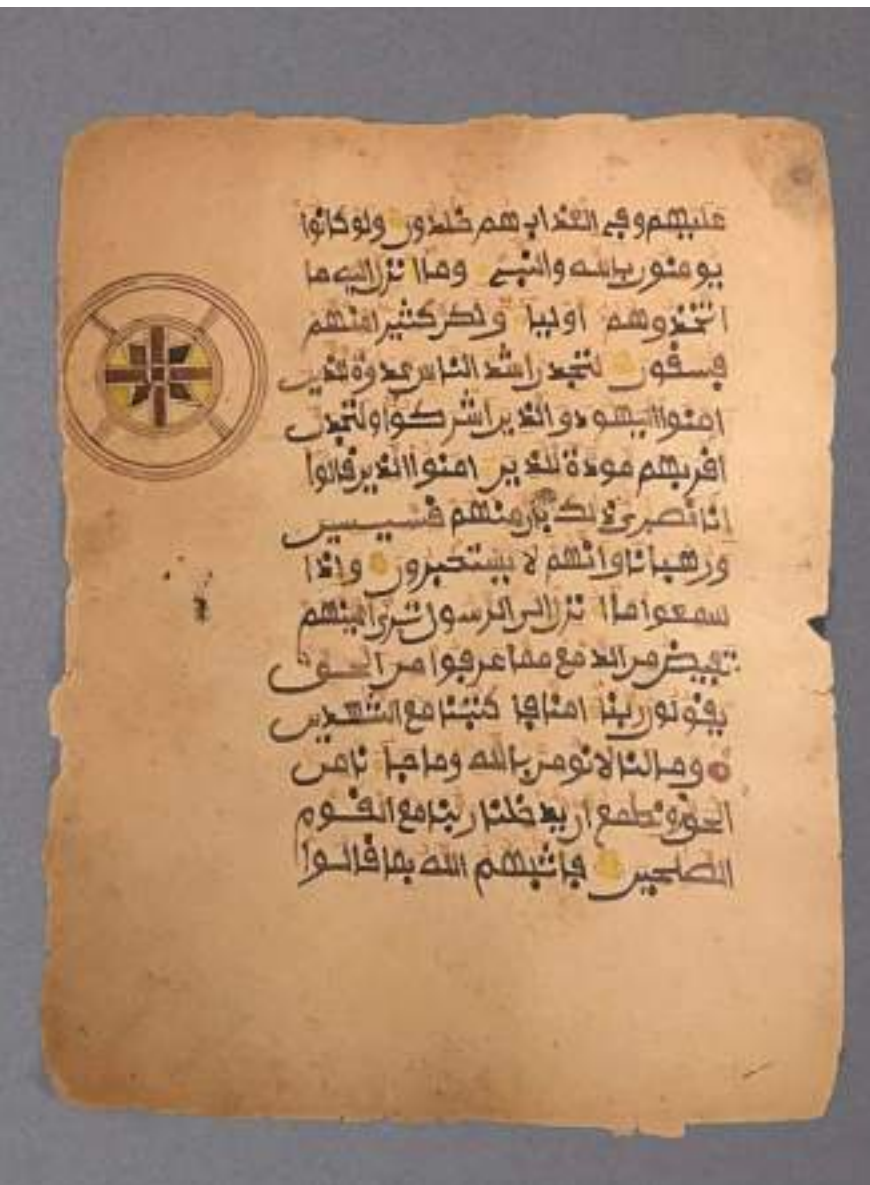 عليهم وفي العذاب هم خلدون ولو كانوا
يومنون بالله والنبي وما انزل اليه ما
اتخذوهم اوليا ولكن كثيرا منهم
فسقون لتجدن اشد الناس عدوة للذين
امنوا اليهود والذين اشركوا ولتجدن
اقربهم مودة للذين امنوا الذين قالوا
انا نصرى ذلك بان منهم قسيسين
ورهبانا وانهم لا يستكبرون واذا
سمعوا ما انزل الى الرسول ترى اعينهم
تفيض من الدمع مما عرفوا من الحق
يقولون ربنا امنا فاكتبنا مع الشهدين
وما لنا لا نومن بالله وما جا نا من
الحق ونطمع ان يدخلنا ربنا مع القوم
الصلحين فاثبهم الله بما قالوا